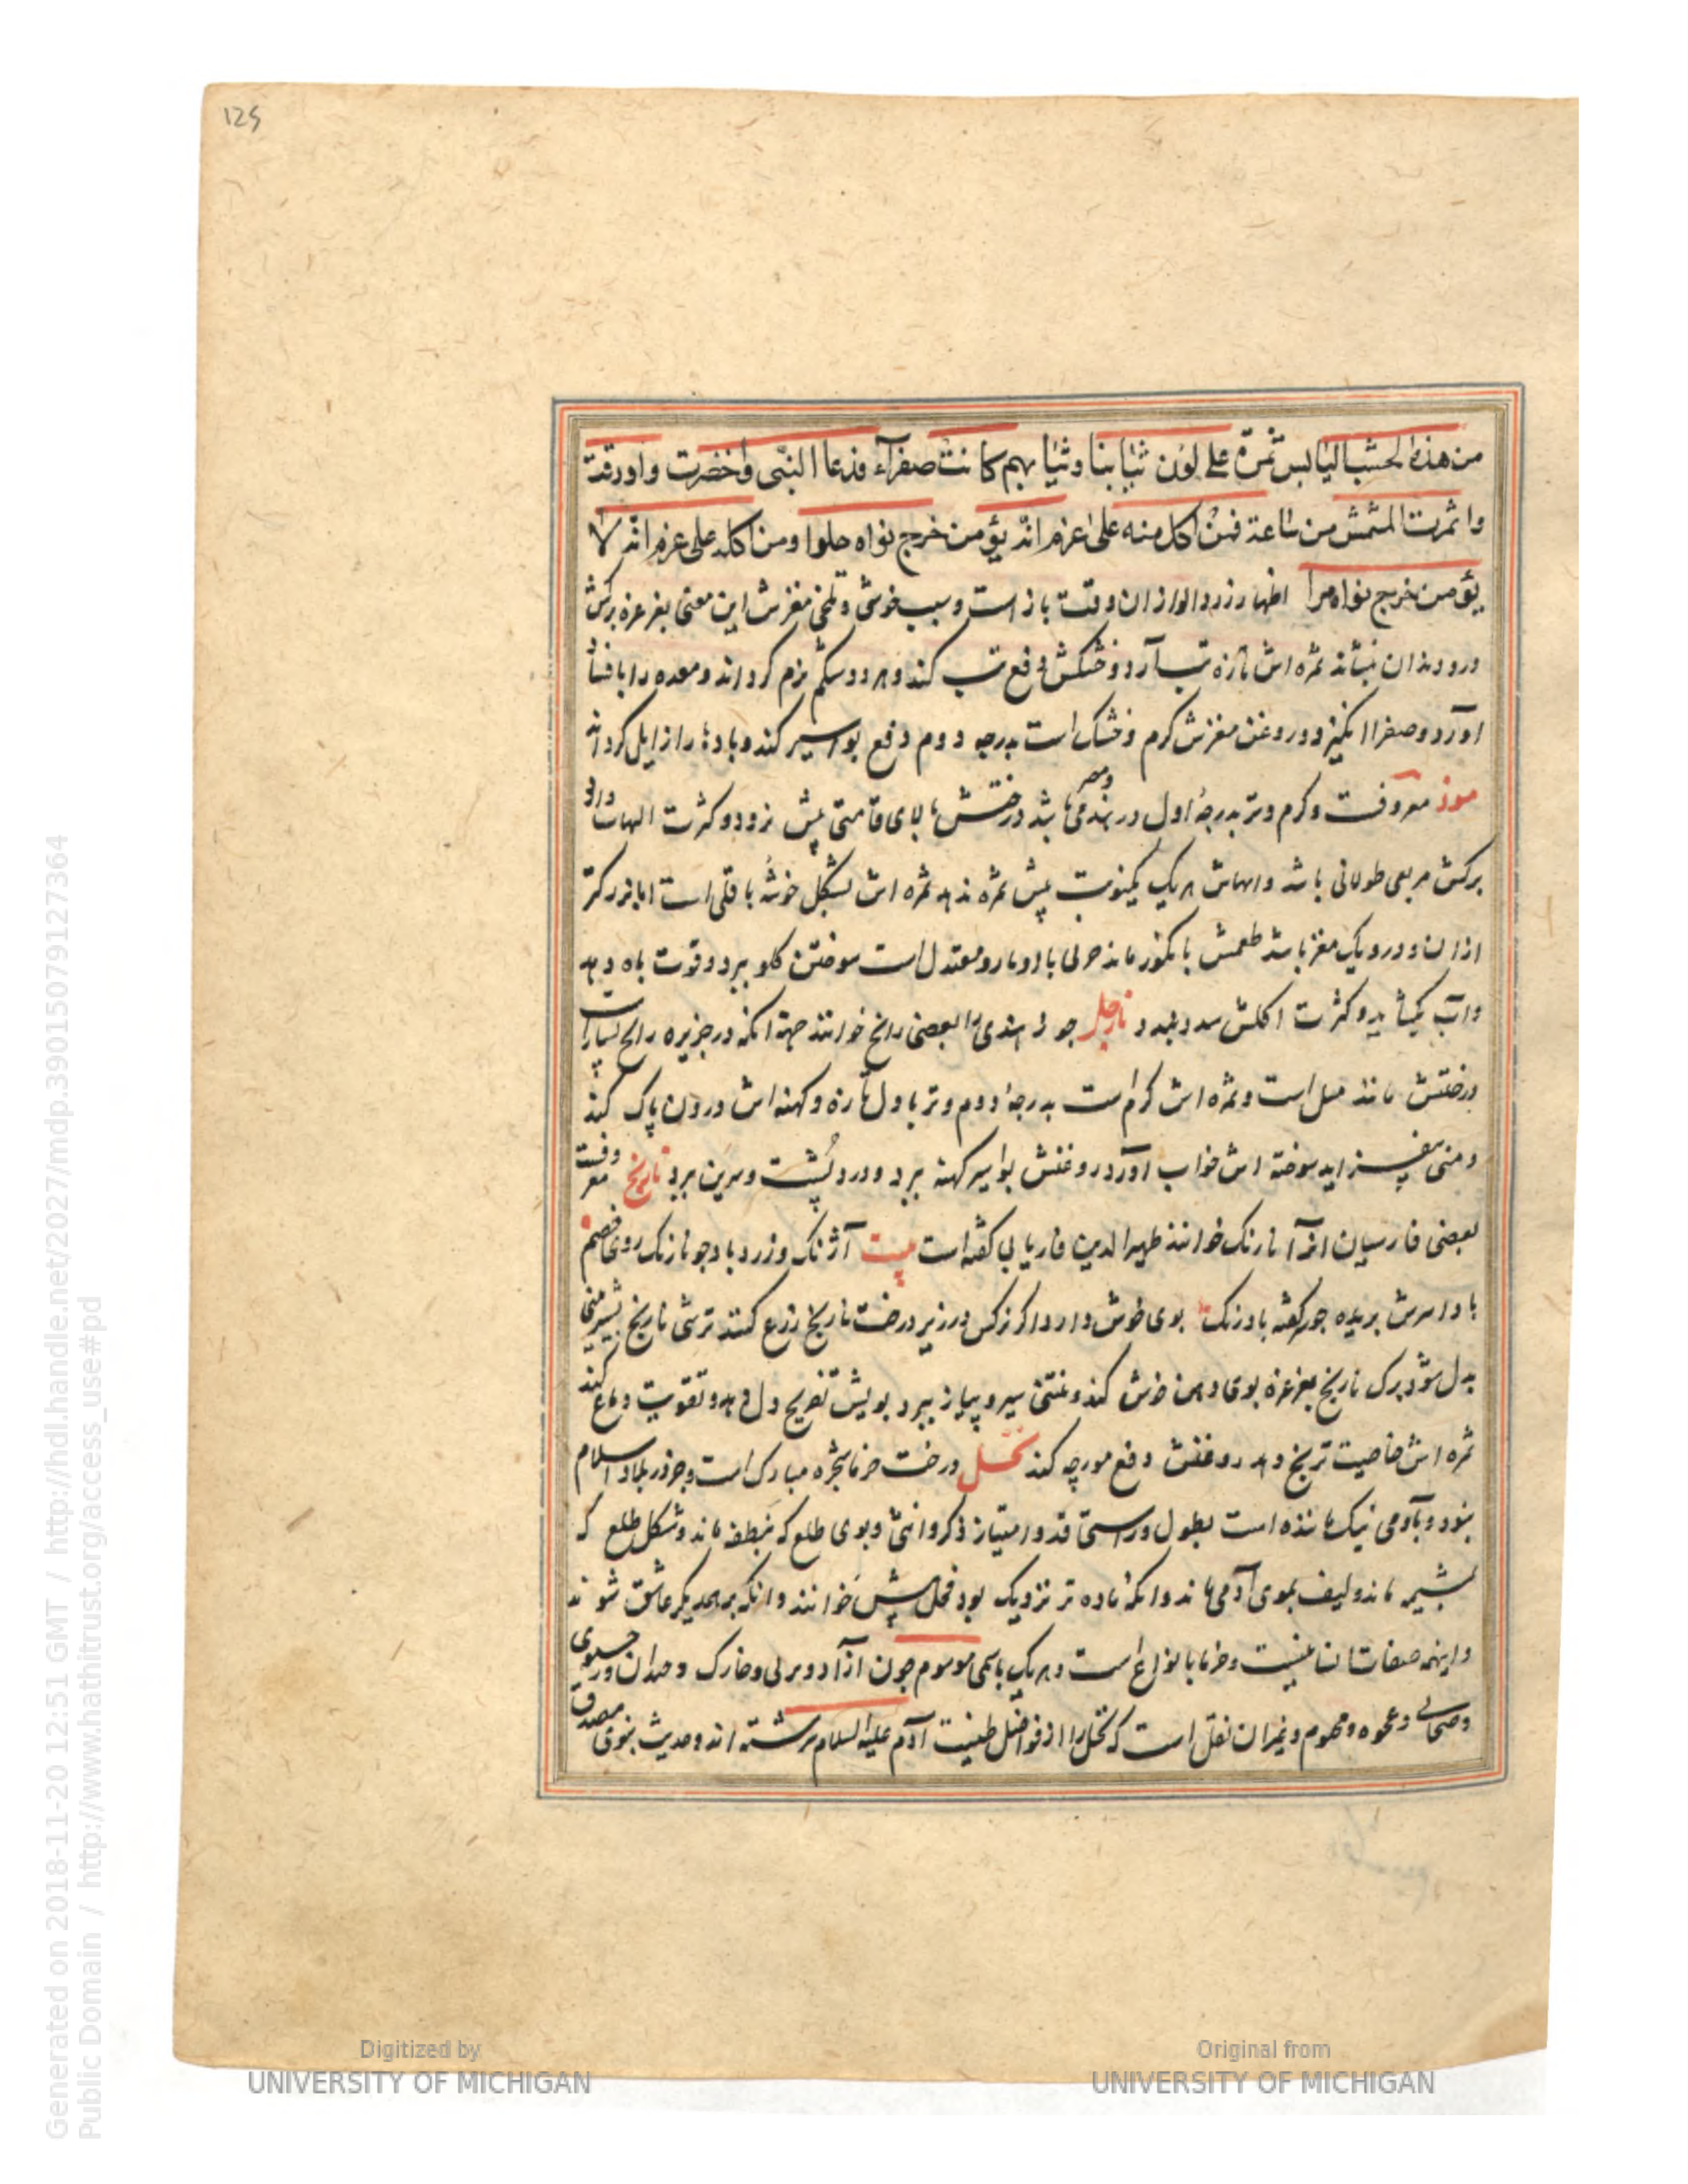 125
من هذه الخشب اليابس ثمرة على لون ثيابنا وثيابهم كانت صفرآء فدعا النبى واخضرت واورقت
واثمرت المشمش من ساعة فمن اكل منه على عزم انه يؤمن خرج نواه حلوا ومن اكله على عزم انه لا
يؤمن خرج نواه مرا اظهار زردالو از ان وقت باز است وسبب خوشى وتلخى مغزش اين معنى بغرغره بركش
درد دندان بنشاند ثمره اش تازه تب آرد وخشكش دفع تب كند وهر دو شكم نرم كرداند ومعده را با فساد
آورد وصفرا انكيزد وروغن مغزش كرم وخشك است بدرجه دوم دفع بواسير كند وبادها را زايل كرداند
موز معروفست وكرم وتر بدرجهٔ اول در هند ومصر مى باشد درختش بالاى قامتى بيش نرود وكثرت
بركش مربعى طولانى باشد هر يك يكنوبت بيش ثمره ندهد ثمره اش بشكل خوشهٔ باقلى است اما بزركتر
از ان ودرو يك مغز باشد طعمش ومعتدل است سوختن كلو ببرد وقوت باه دهد
وآب بكشايد وكثرت اكلش سده بندد نارجيل جوز هندى را بعضى رانج خوانند جهة انكه در جزيره رانج بسيار است
درختش مانند است وثمره اش كرم است بدرجهٔ دوم وتر باول تازه وكهنه اش درون پاك كند
ومنى بيفزايد سوخته اش خواب آورد روغنش بواسير كهنه ببرد ودرد پشت وسرين ببرد نارنج معروفست
بعضى فارسيان آنرا نارنك خوانند ظهير الدين فاريابى كفته است بيت آژنك وزرد باد چو نارنك روى خصم
بادا سرش بريده چو كفته بادرنك بوى خوش دارد اكر نركس در زير درخت نارنج زرع كنند ترشى نارنج بشيرينى
بدل شود برك نارنج بغرغره بوى دهن خوش كند ونتنى سير وپياز ببرد بويش تفريح دل دهد وتقويت دماغ كند
ثمره اش خاصيت ترنج دهد روغنش دفع مورچه كند نخل درخت خرما شجره مبارك است وجز در بلاد اسلام
نبود وبآدمى نيك ماننده است بطول وراستى قد وامتياز ذكر وانثى وبوى طلع كه بنطفه ماند وشكل طلع كه
بمشيمه ماند وليف بموى آدمى ماند وانكه ماده تر نزديك بود فحلش خوانند وانكه بر همديكر عاشق شوند
واينهمه صفات انسانيست وخرما بانواع است وهر يك باسمى موسوم چون آزاد وبرنى وخارك
وعجوه نقل است كه نخل را از فواضل طينت آدم عليه السلام سرشته اند وحديث نبوى مصدق
Generated on 2018-11-20 12:51 GMT / http://hdl.handle.net/2027/mdp.39015079127364
Public Domain / http://www.hathitrust.org/access_use#pd
Digitized by
UNIVERSITY OF MICHIGAN
Original from
UNIVERSITY OF MICHIGAN